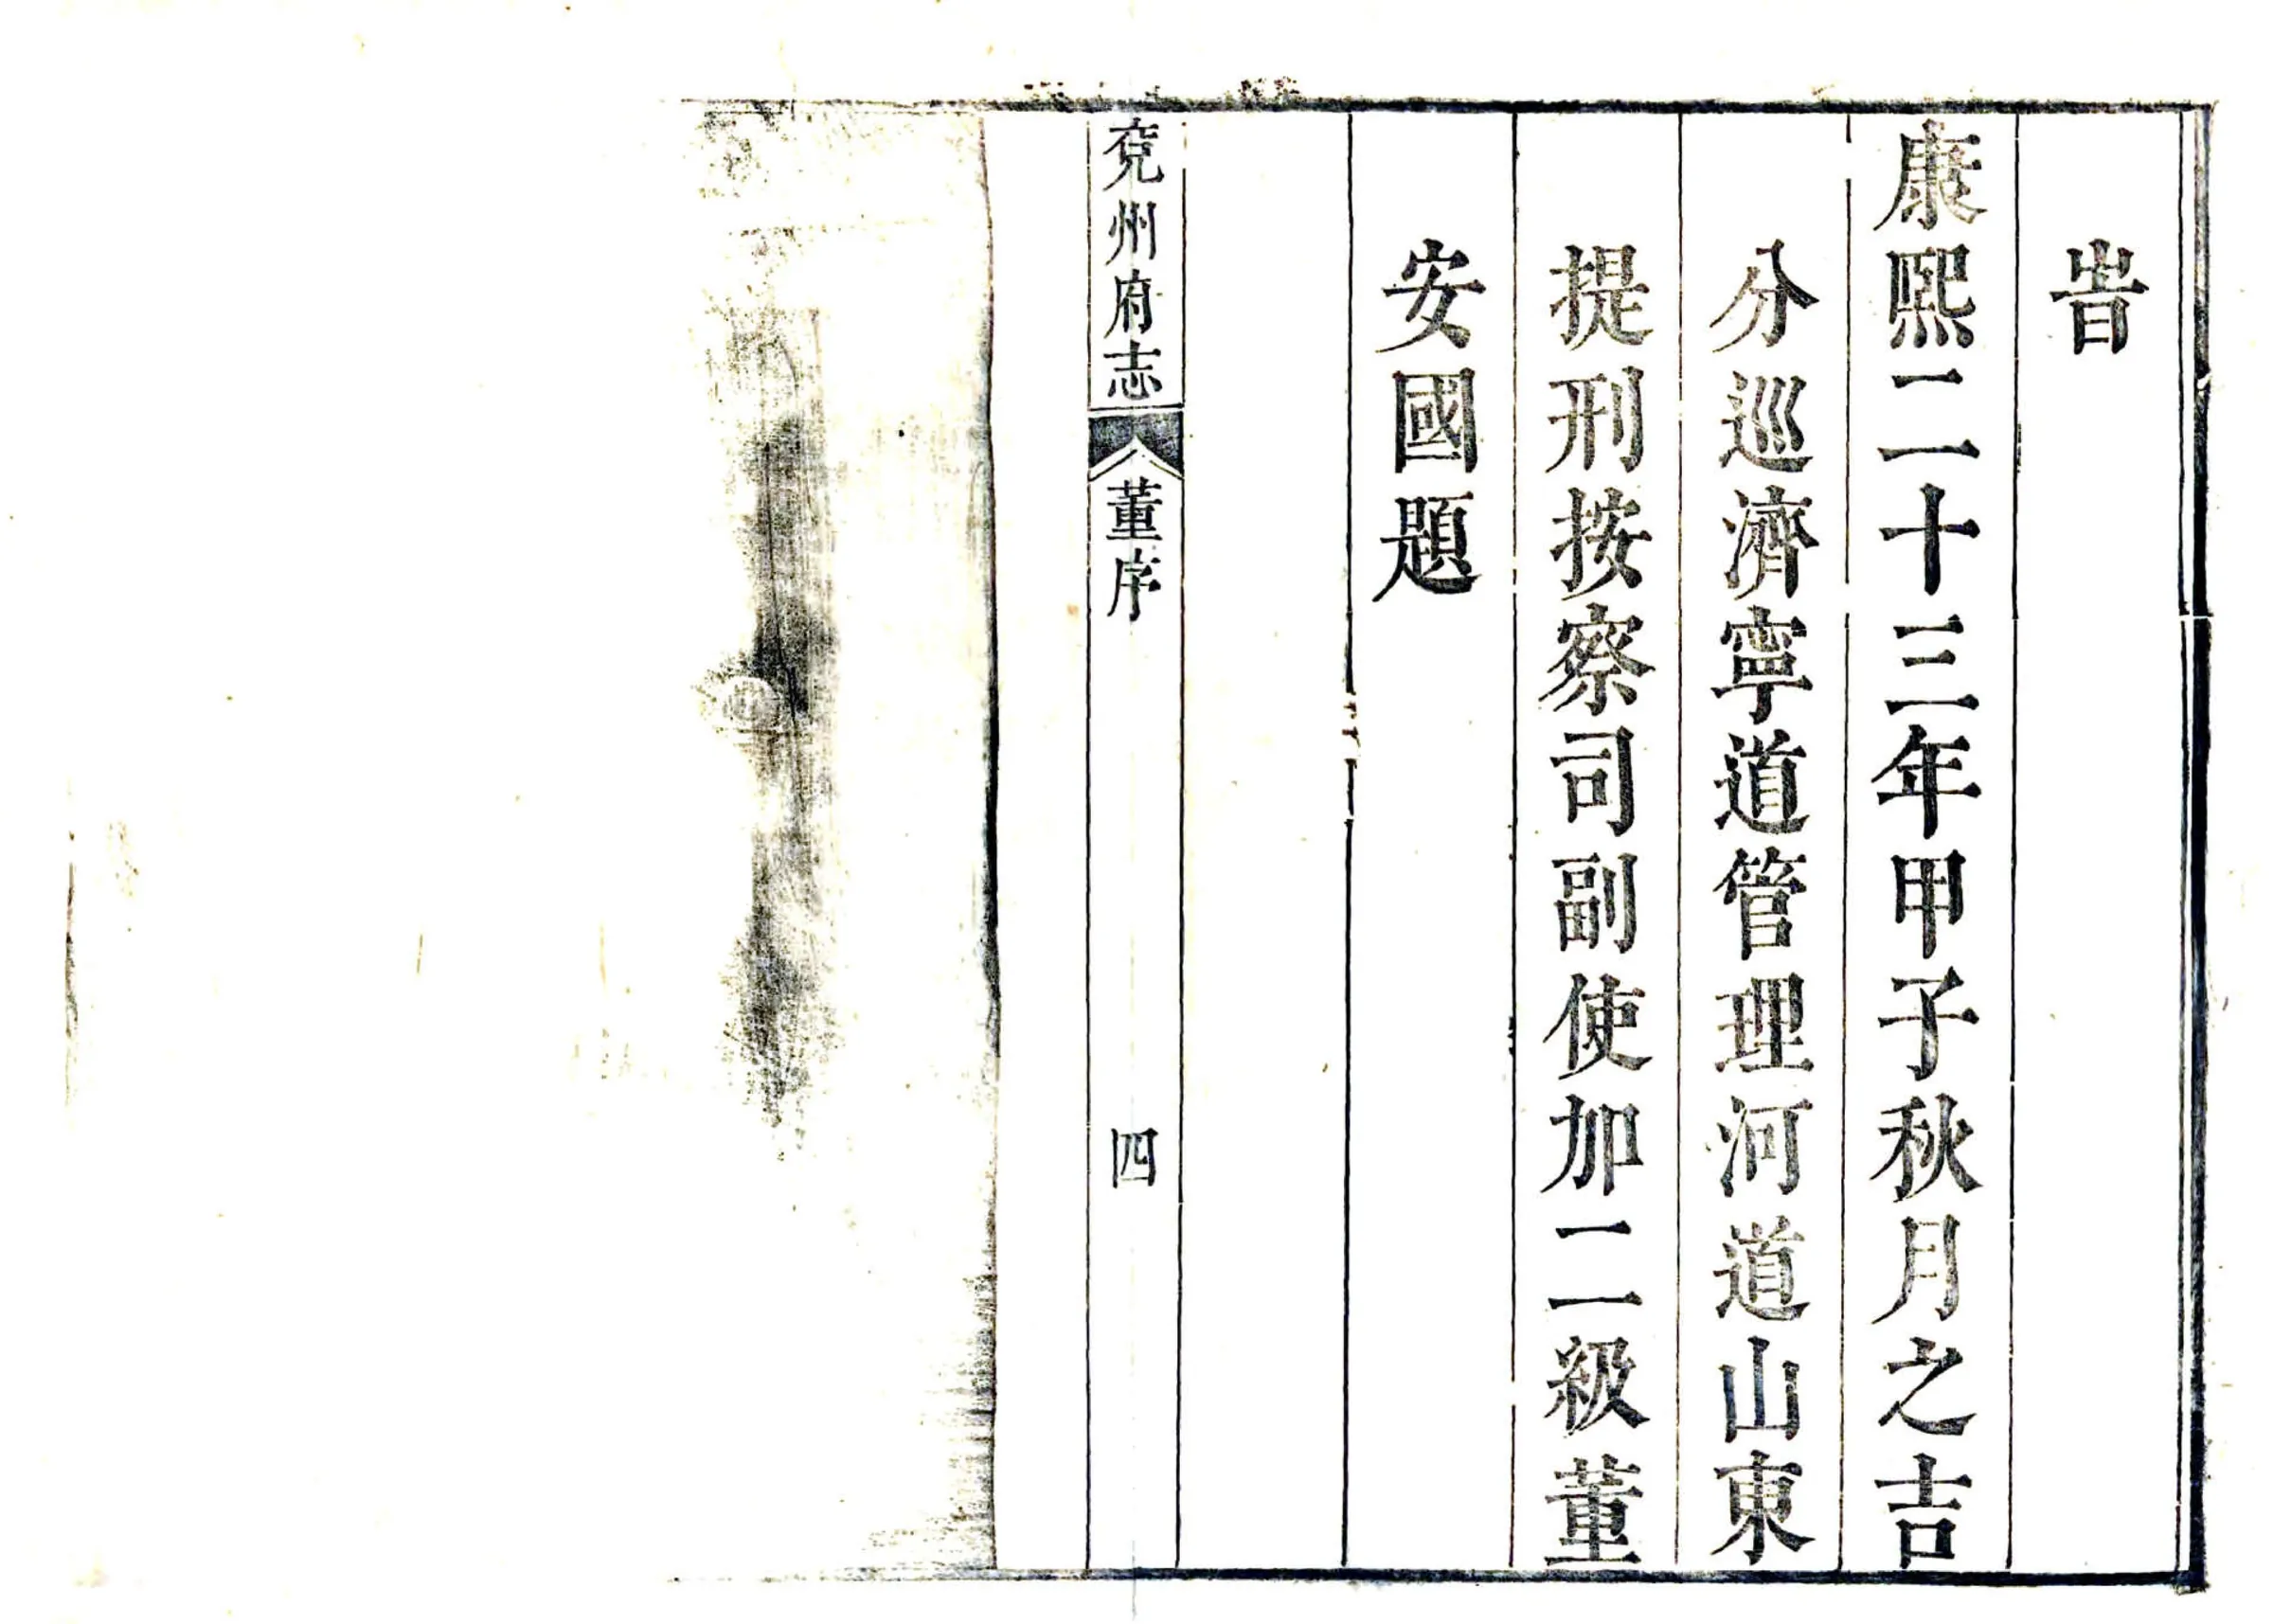 旹
康熙二十三年甲子秋月之吉
分巡濟寧道管理河道山東
提刑按察司副使加二級董
安國題
兗州府志
董序
四